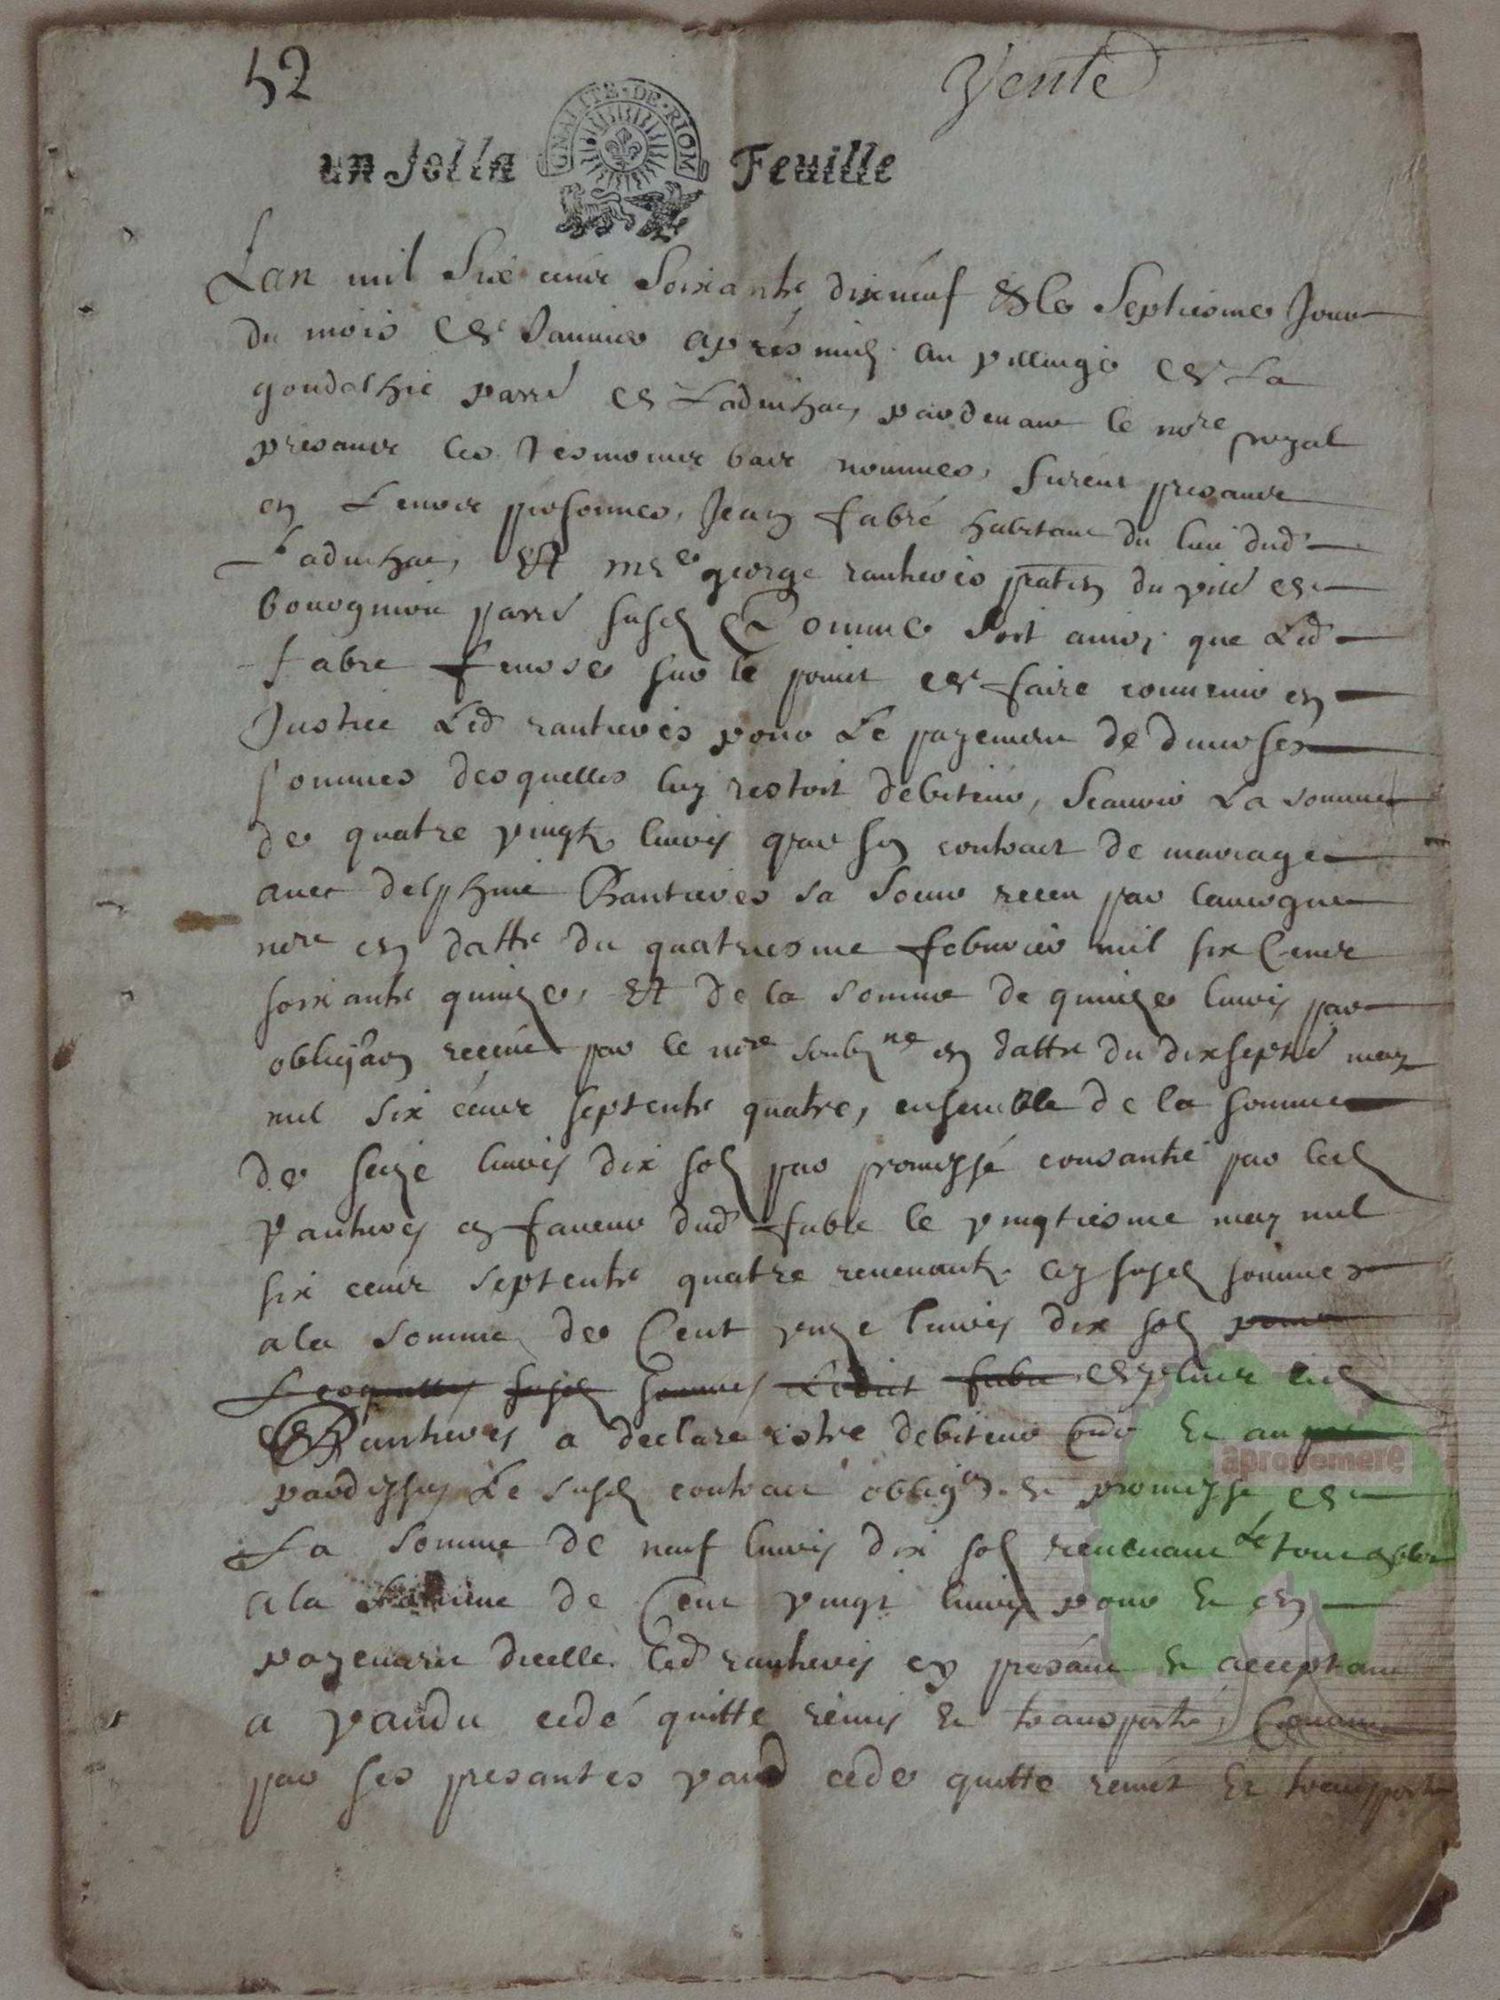 52
Vente
GNALITE·DE·RIOM
un sol la Feuille
Lan mil six cens soixante dix neuf & le septiesme Jour
du mois de Janvier apres midy au villaige de la
goudelhie parr^e de Ladinhac, pardevant le no^re royal
presants les tesmoins bas nommes, furent presants
en leurs personnes, Jean fabre habitant du lieu dud
Ladinhac, Et m^e george rantieres praticn du vill^e de
parr^e susd Comme soit ainsy que Led
fabre feuse sur le point de faire convenir en
Justice Led rantieres pour Le payement de diverses
sommes desquelles luy restoit debiteur, scavoir La somme
de quatre vingtz livres par son contract de mariage
avec delphine Rantieres sa soeur receu par
no^re en datte du quatriesme febvrier mil six Cens
soixante quinze, Et de la somme de quinze livres par
obliga^on receue par le no^re soubz^ne en datte du dixsept^e may
mil six cens septente quatre, ensemble de la somme
de seize livres dix solz par promesse consantie par led
Rantieres en faveur dud fabre le vingtiesme may mil
six cens septente quatre revenantz en susd sommes
a la somme de Cent unze livres dix solz pour
Lesquelles susd sommes Ledict fabre & plus led
Rantieres a declare estre debiteur
pardessus Le susd contract oblig^on & promesse de
La somme de neuf livres dix solz revenant le tout
a la somme de Cent vingt livres pour & en
payement dicelle led rantieres cy presant & acceptant
a vandu cedé quitté remis & transporté, Comme
par ses presantes vand cede quitte remet & transporte
aprogemere